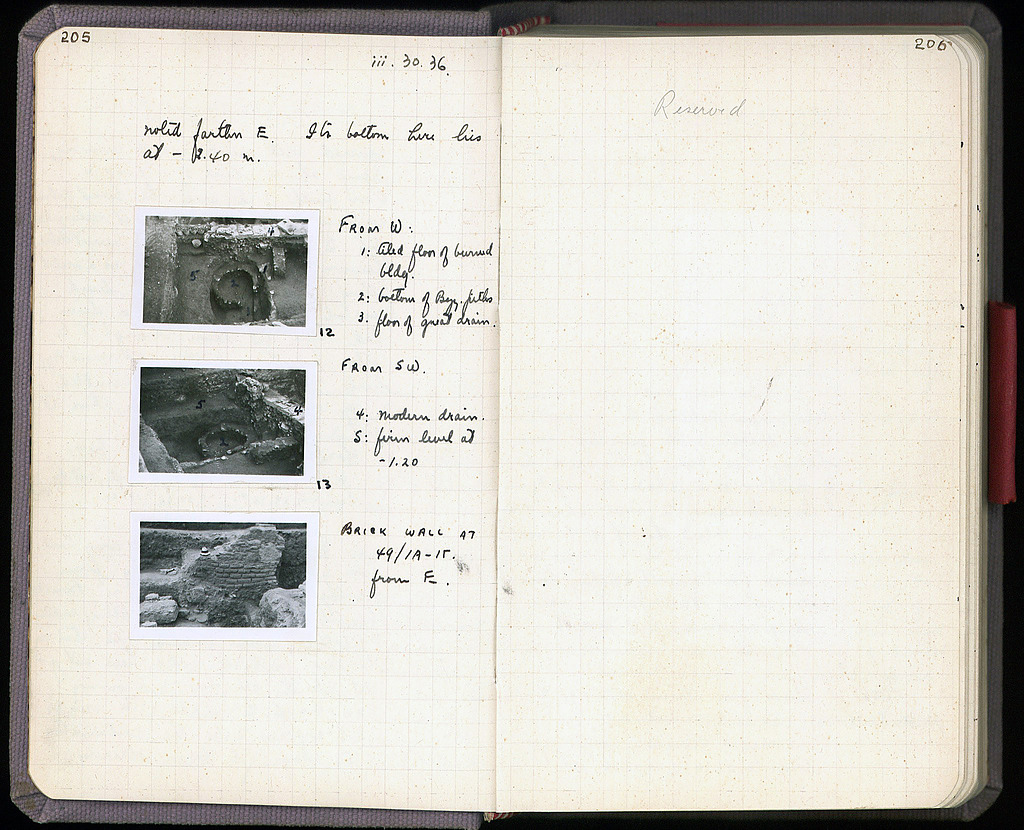 205
iii. 30. 36.
noted farther E. Its bottom here lies
at - .40 m.
FROM W:
1: tiled floor of burned
bldg.
2: bottom of Byz. pithos
3. floor of great drain.
12
FROM SW.
4: modern drain.
5: firm level at
-1.20
13
BRICK WALL AT
49/ΙΑ-ΙΓ.
from E.
4
5
2
5
4
2
206
Reserved